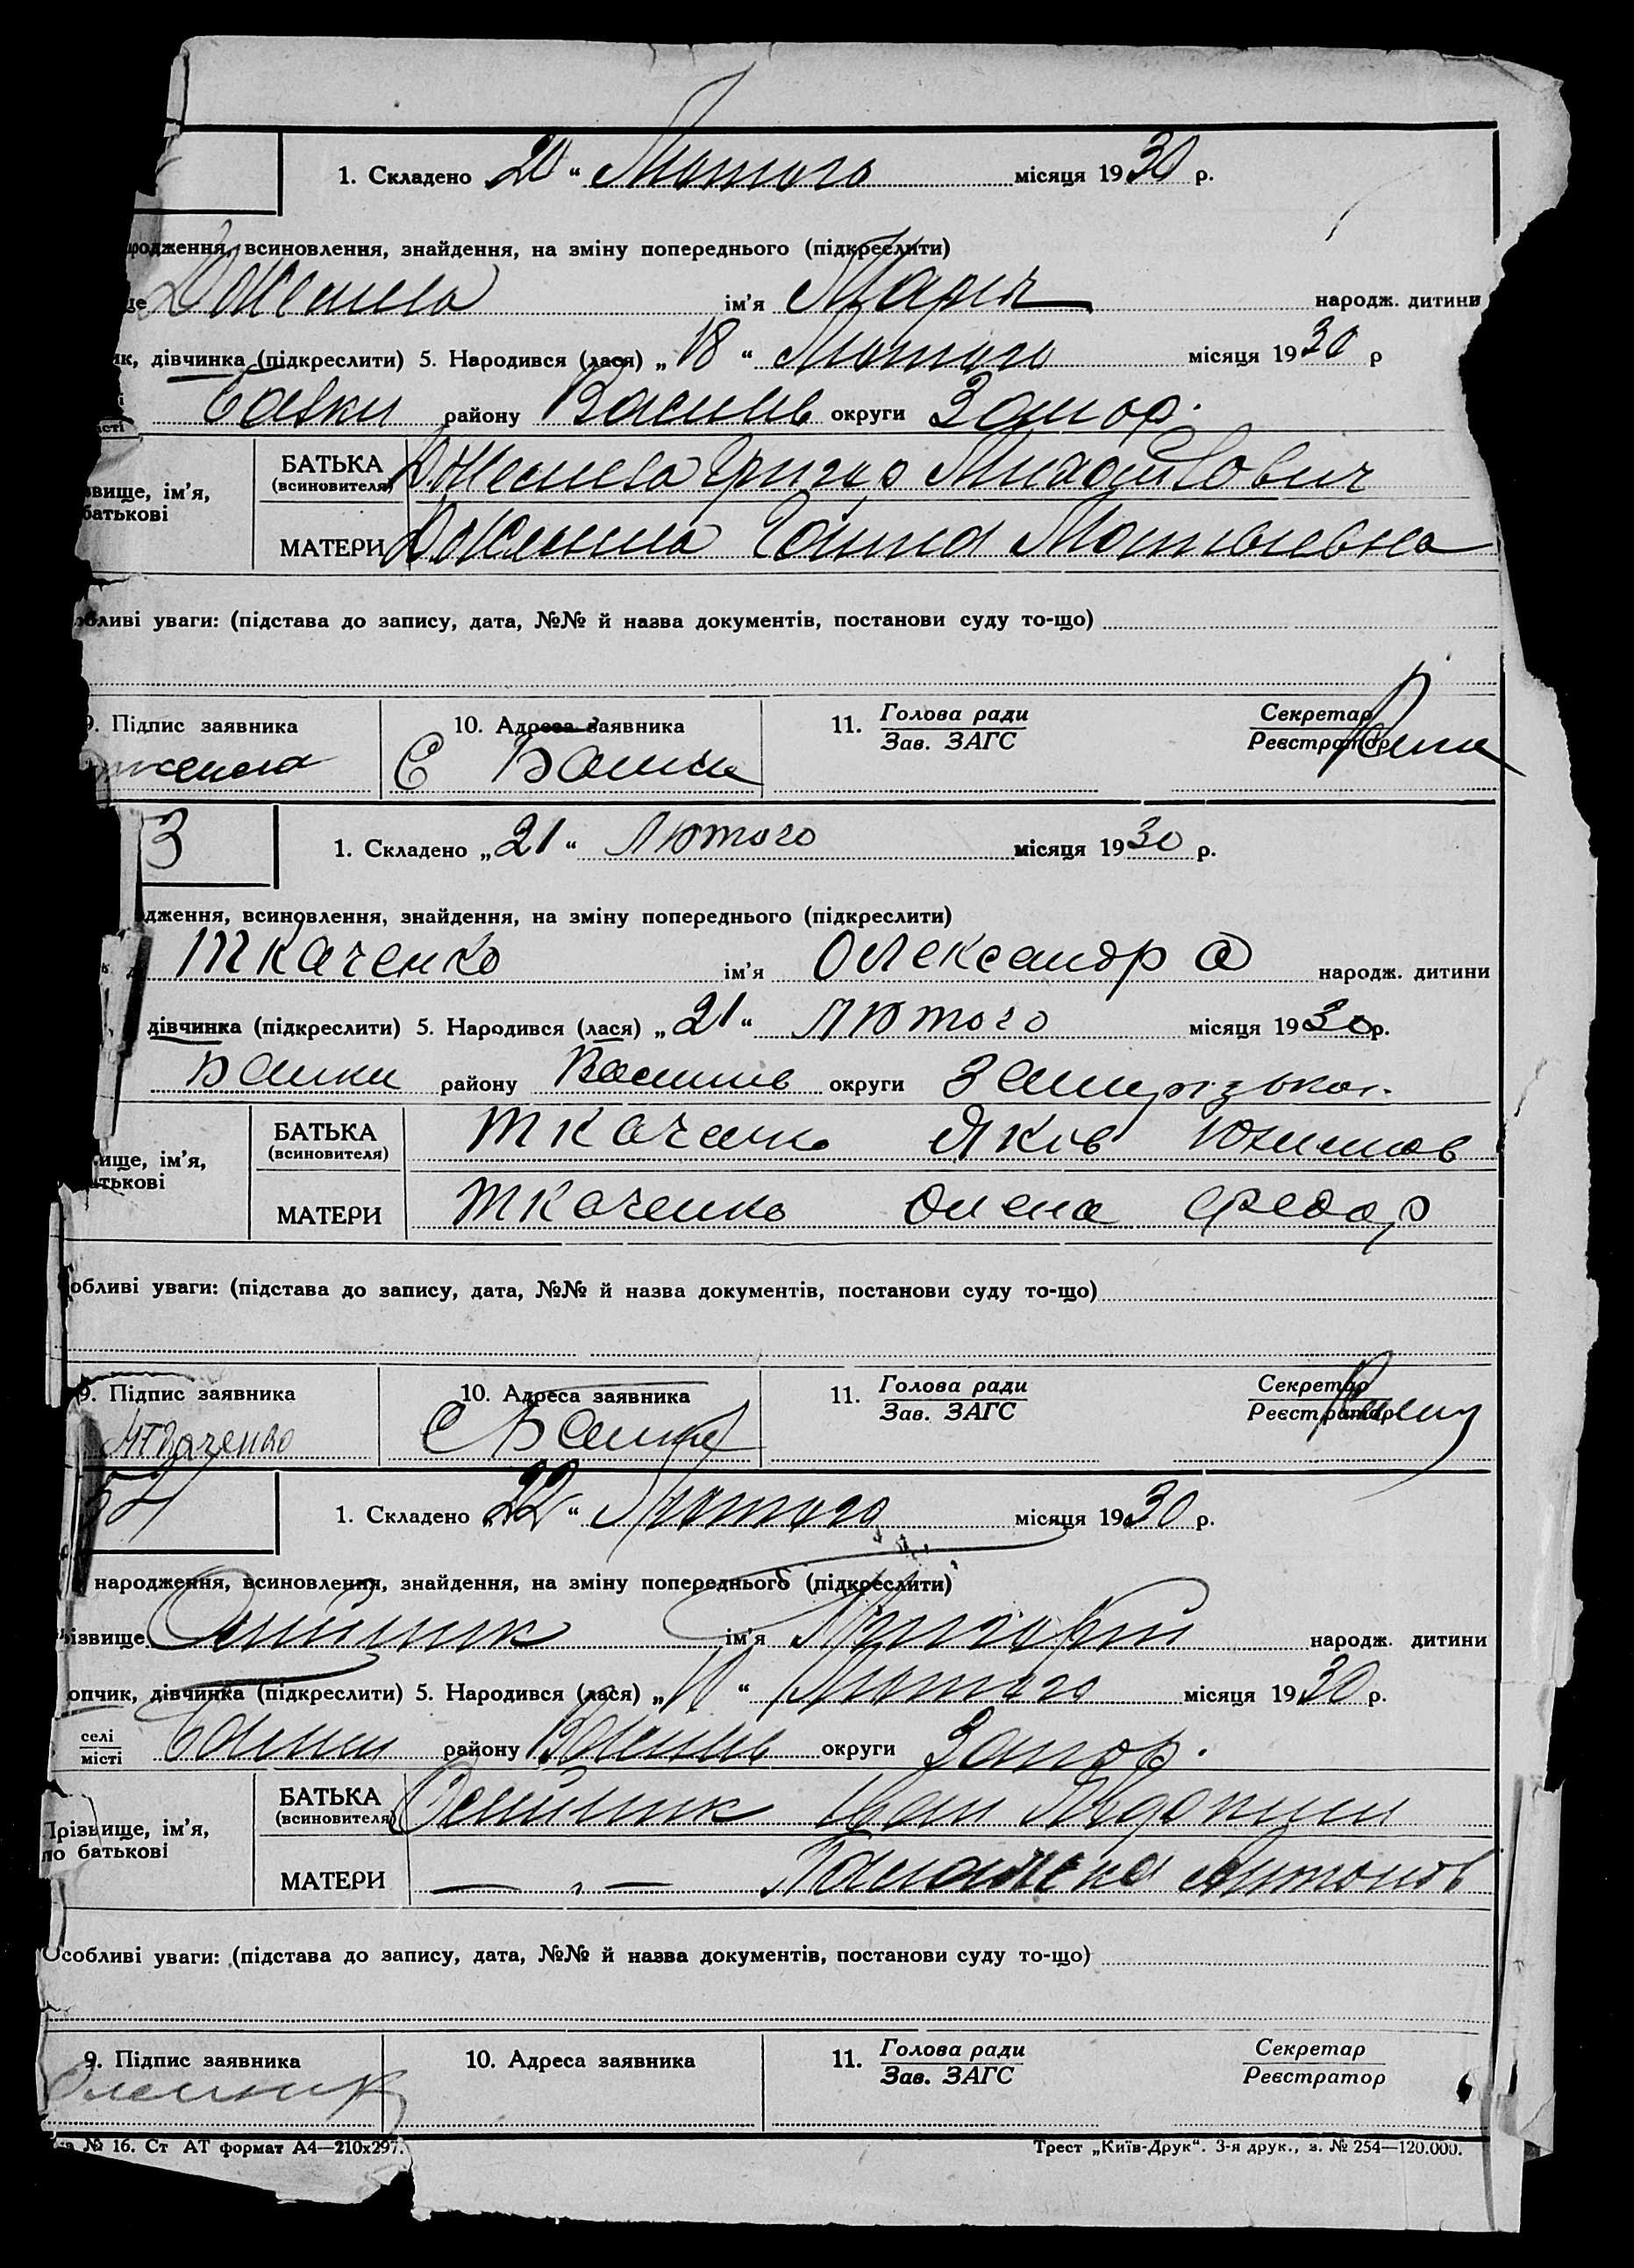 1. Складено 20 “ Лютого місяця 1930 р.
родження, всиновлення, знайдення, на зміну попереднього (підкреслити)
ще Джепела ім'я Марія народж. дитини
ик, дівчинка (підкреслити) 5. Народився (лася) „ 18 “ Лютого місяця 1930 р
Балки району Василів округи Запор.
БАТЬКА Джепела Григор Михайлович
(всиновителя)
звище, ім'я,
батькові
МАТЕРИ Матвіевна
обливі уваги: (підстава до запису, дата, №№ й назва документів, постанови суду то-що)
9. Підпис заявника 10. Адреса заявника 11. Голова ради Секретар
Зав. ЗАГС Реєстратор
С Балки
3
1. Складено „ 21 “ Лютого місяця 1930 р.
дження, всиновлення, знайдення, на зміну попереднього (підкреслити)
Ткаченко ім'я Олександра народж. дитини
дівчинка (підкреслити) 5. Народився (лася) „ 21 “ Лютого місяця 1930 р.
Балки району Василів округи Запорізької
БАТЬКА Ткаченко Яків Юхимов
(всиновителя)
ище, ім'я,
атькові
МАТЕРИ Ткаченко Олена Федор
обливі уваги: (підстава до запису, дата, №№ й назва документів, постанови суду то-що)
9. Підпис заявника 10. Адреса заявника 11. Голова ради Секретар
Зав. ЗАГС Реєстратор
Ткаченко С Балки
54
1. Складено „ 22 “ Лютого місяця 1930 р.
народження, всиновлення, знайдення, на зміну попереднього (підкреслити)
ізвище Олійник ім'я Григорій народж. дитини
опчик, дівчинка (підкреслити) 5. Народився (лася) „ “ Лютого місяця 1930 р.
селі
місті Балки району Василів округи Запор.
БАТЬКА Олійник Іван
(всиновителя)
Прізвище, ім'я,
по батькові
МАТЕРИ — „ — Палажка Антонов
Особливі уваги: (підстава до запису, дата, №№ й назва документів, постанови суду то-що)
9. Підпис заявника 10. Адреса заявника 11. Голова ради Секретар
Зав. ЗАГС Реєстратор
Олейник
№ 16. Ст АТ формат А4—210х297. Трест „Київ-Друк“. 3-я друк., з. № 254—120.000.